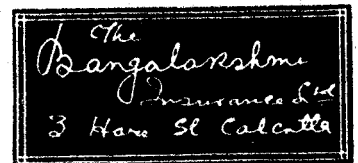 The
Bangalakshmi
Insurance Ltd
3 Hare St Calcutta